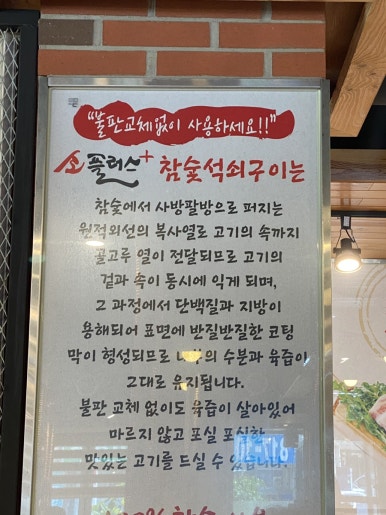 "불판교체없이 사용하세요!!"
소플러스+ 참숯석쇠구이는
참숯에서 사방팔방으로 퍼지는
원적외선의 복사열로 고기의 속까지
골고루 열이 전달되므로 고기의
겉과 속이 동시에 익게 되며,
그 과정에서 단백질과 지방이
용해되어 표면에 반질반질한 코팅
막이 형성되므로 의 수분과 육즙이
그대로 유지됩니다.
불판 교체 없이도 육즙이 살아있어
마르지 않고 포실 포실한
맛있는 고기를 드실 수 있습니다.